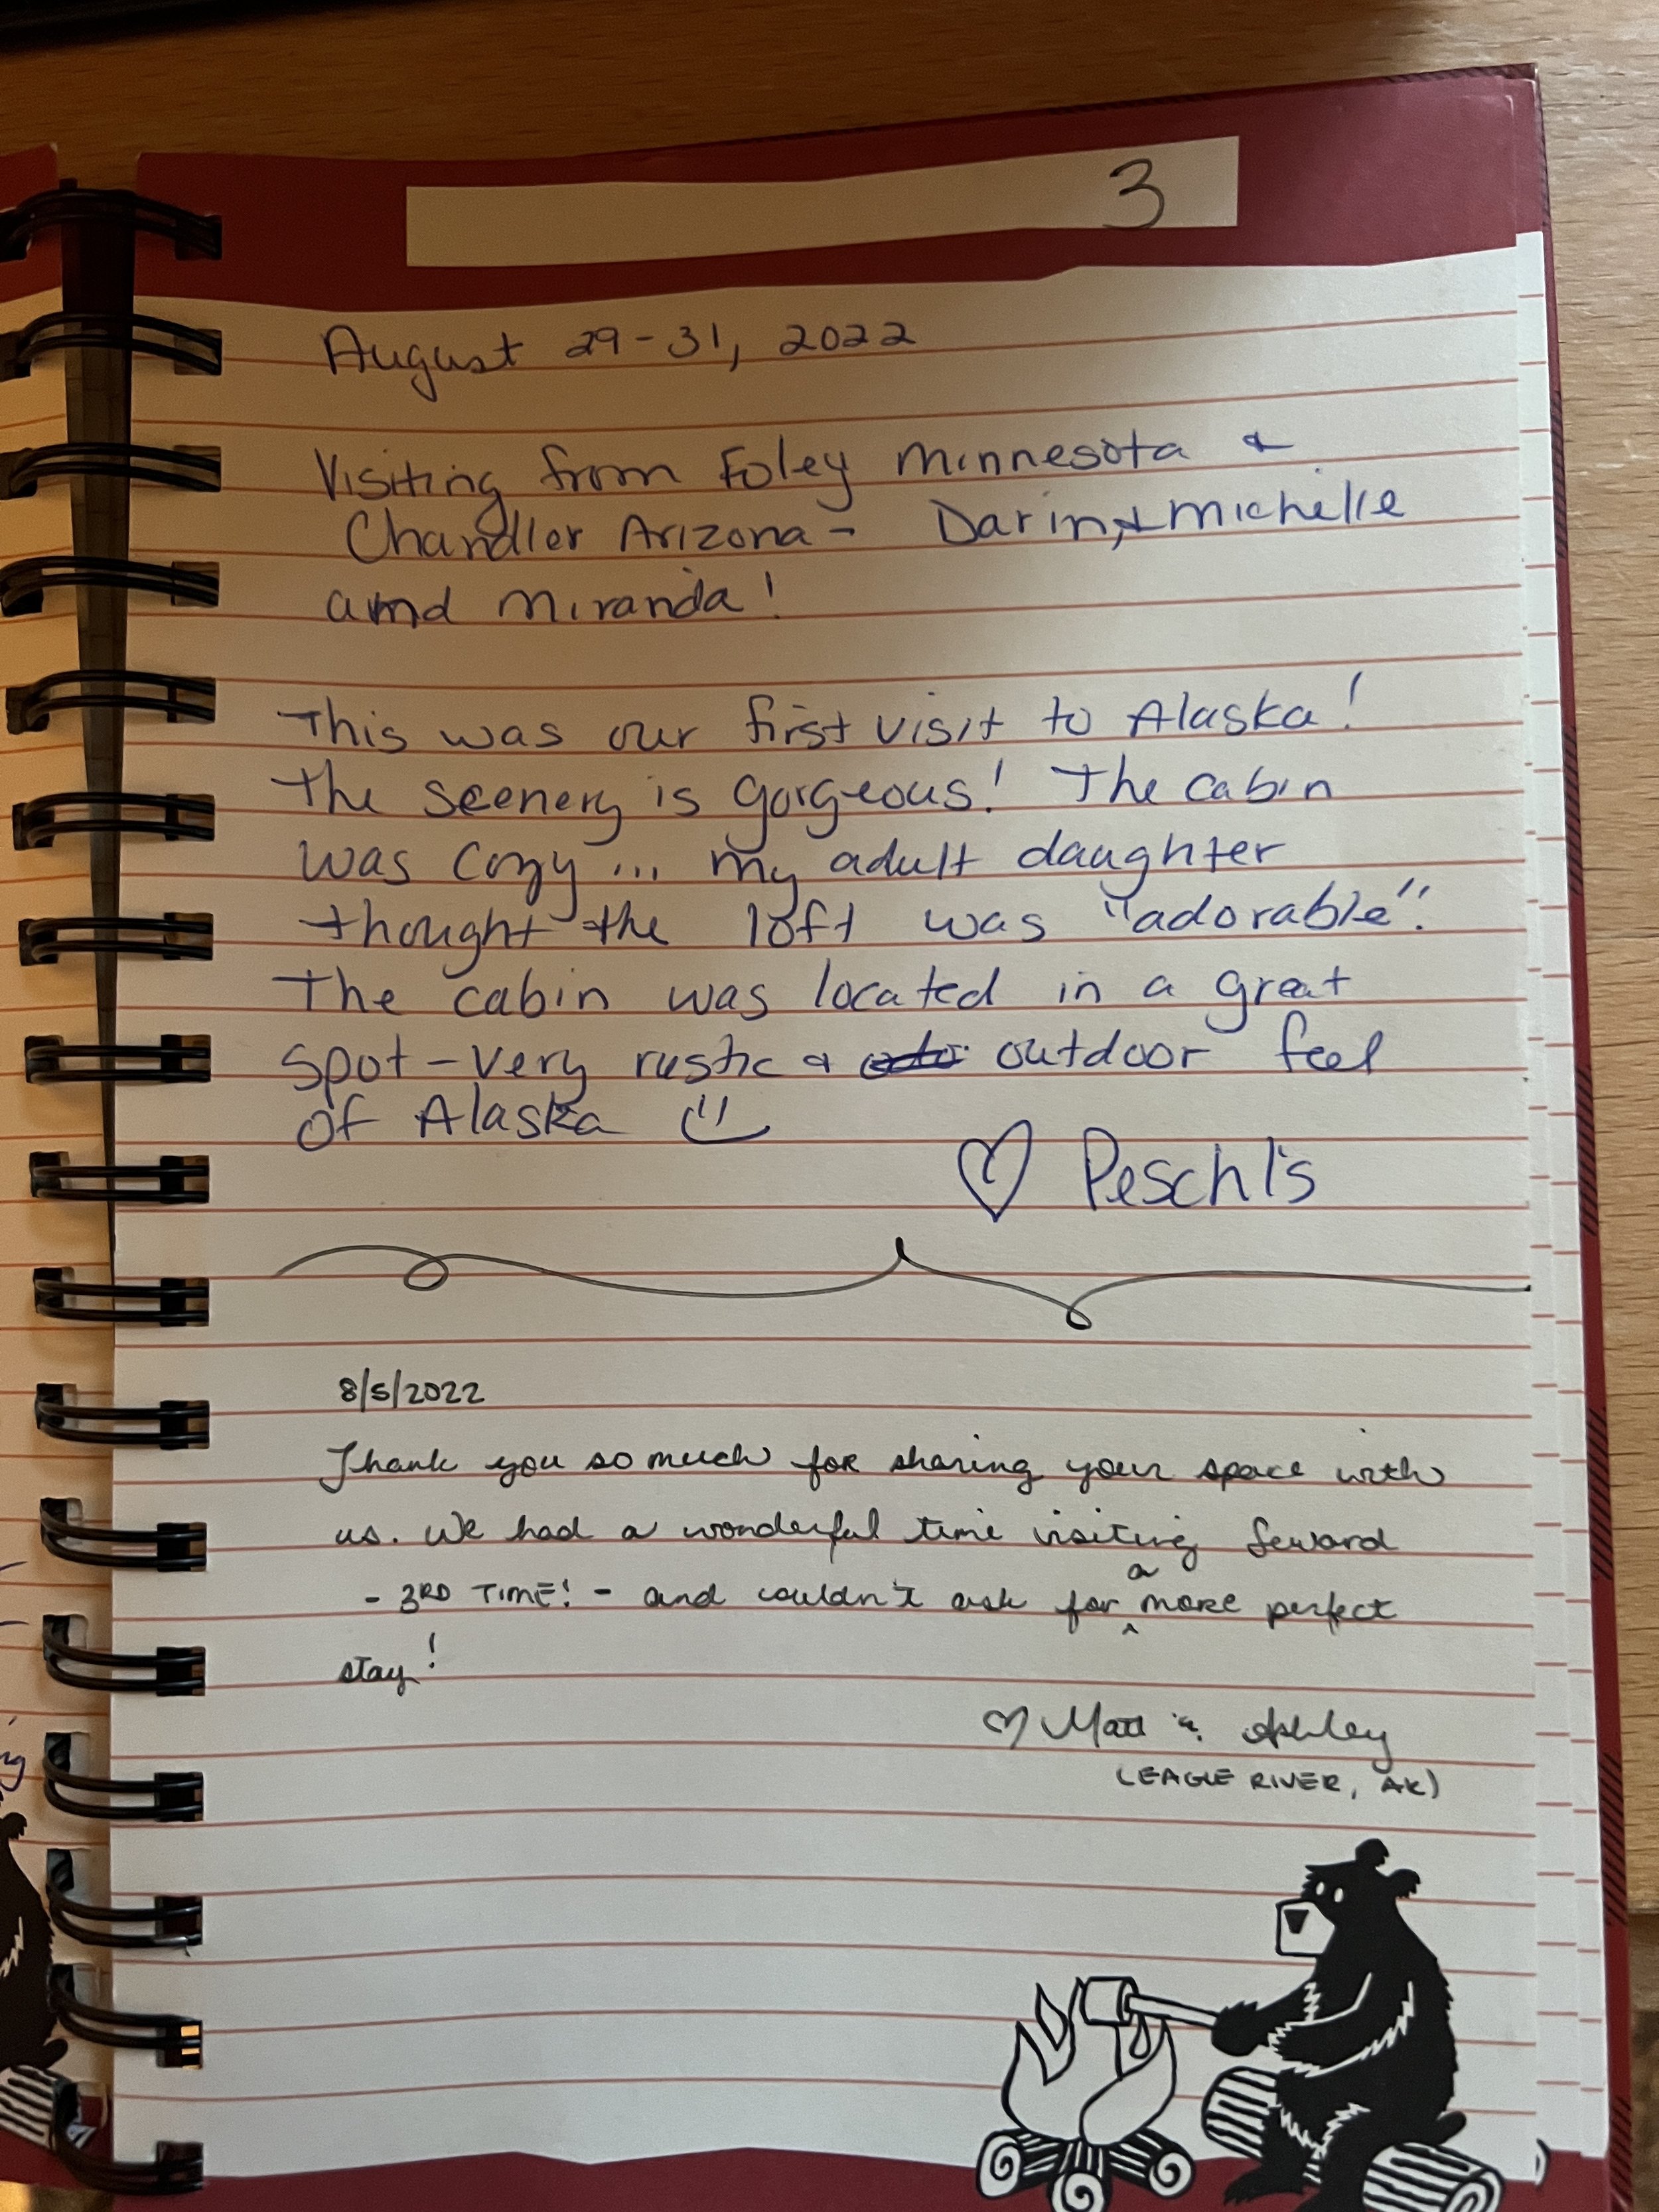 3
August 29-31, 2022
Visiting from Foley Minnesota &
Chandler Arizona - Darin, & Michelle
and Miranda!
This was our first visit to Alaska!
The scenery is gorgeous! The cabin
was cozy... my adult daughter
thought the loft was "adorable".
The cabin was located in a great
spot - very rustic & outdoor feel
of Alaska
Peschl's
8/5/2022
Thank you so much for sharing your space with
us. We had a wonderful time visiting Seward
- 3RD TIME! - and couldn't ask for a more perfect
stay!
Matt & Ashley
(EAGLE RIVER, AK)